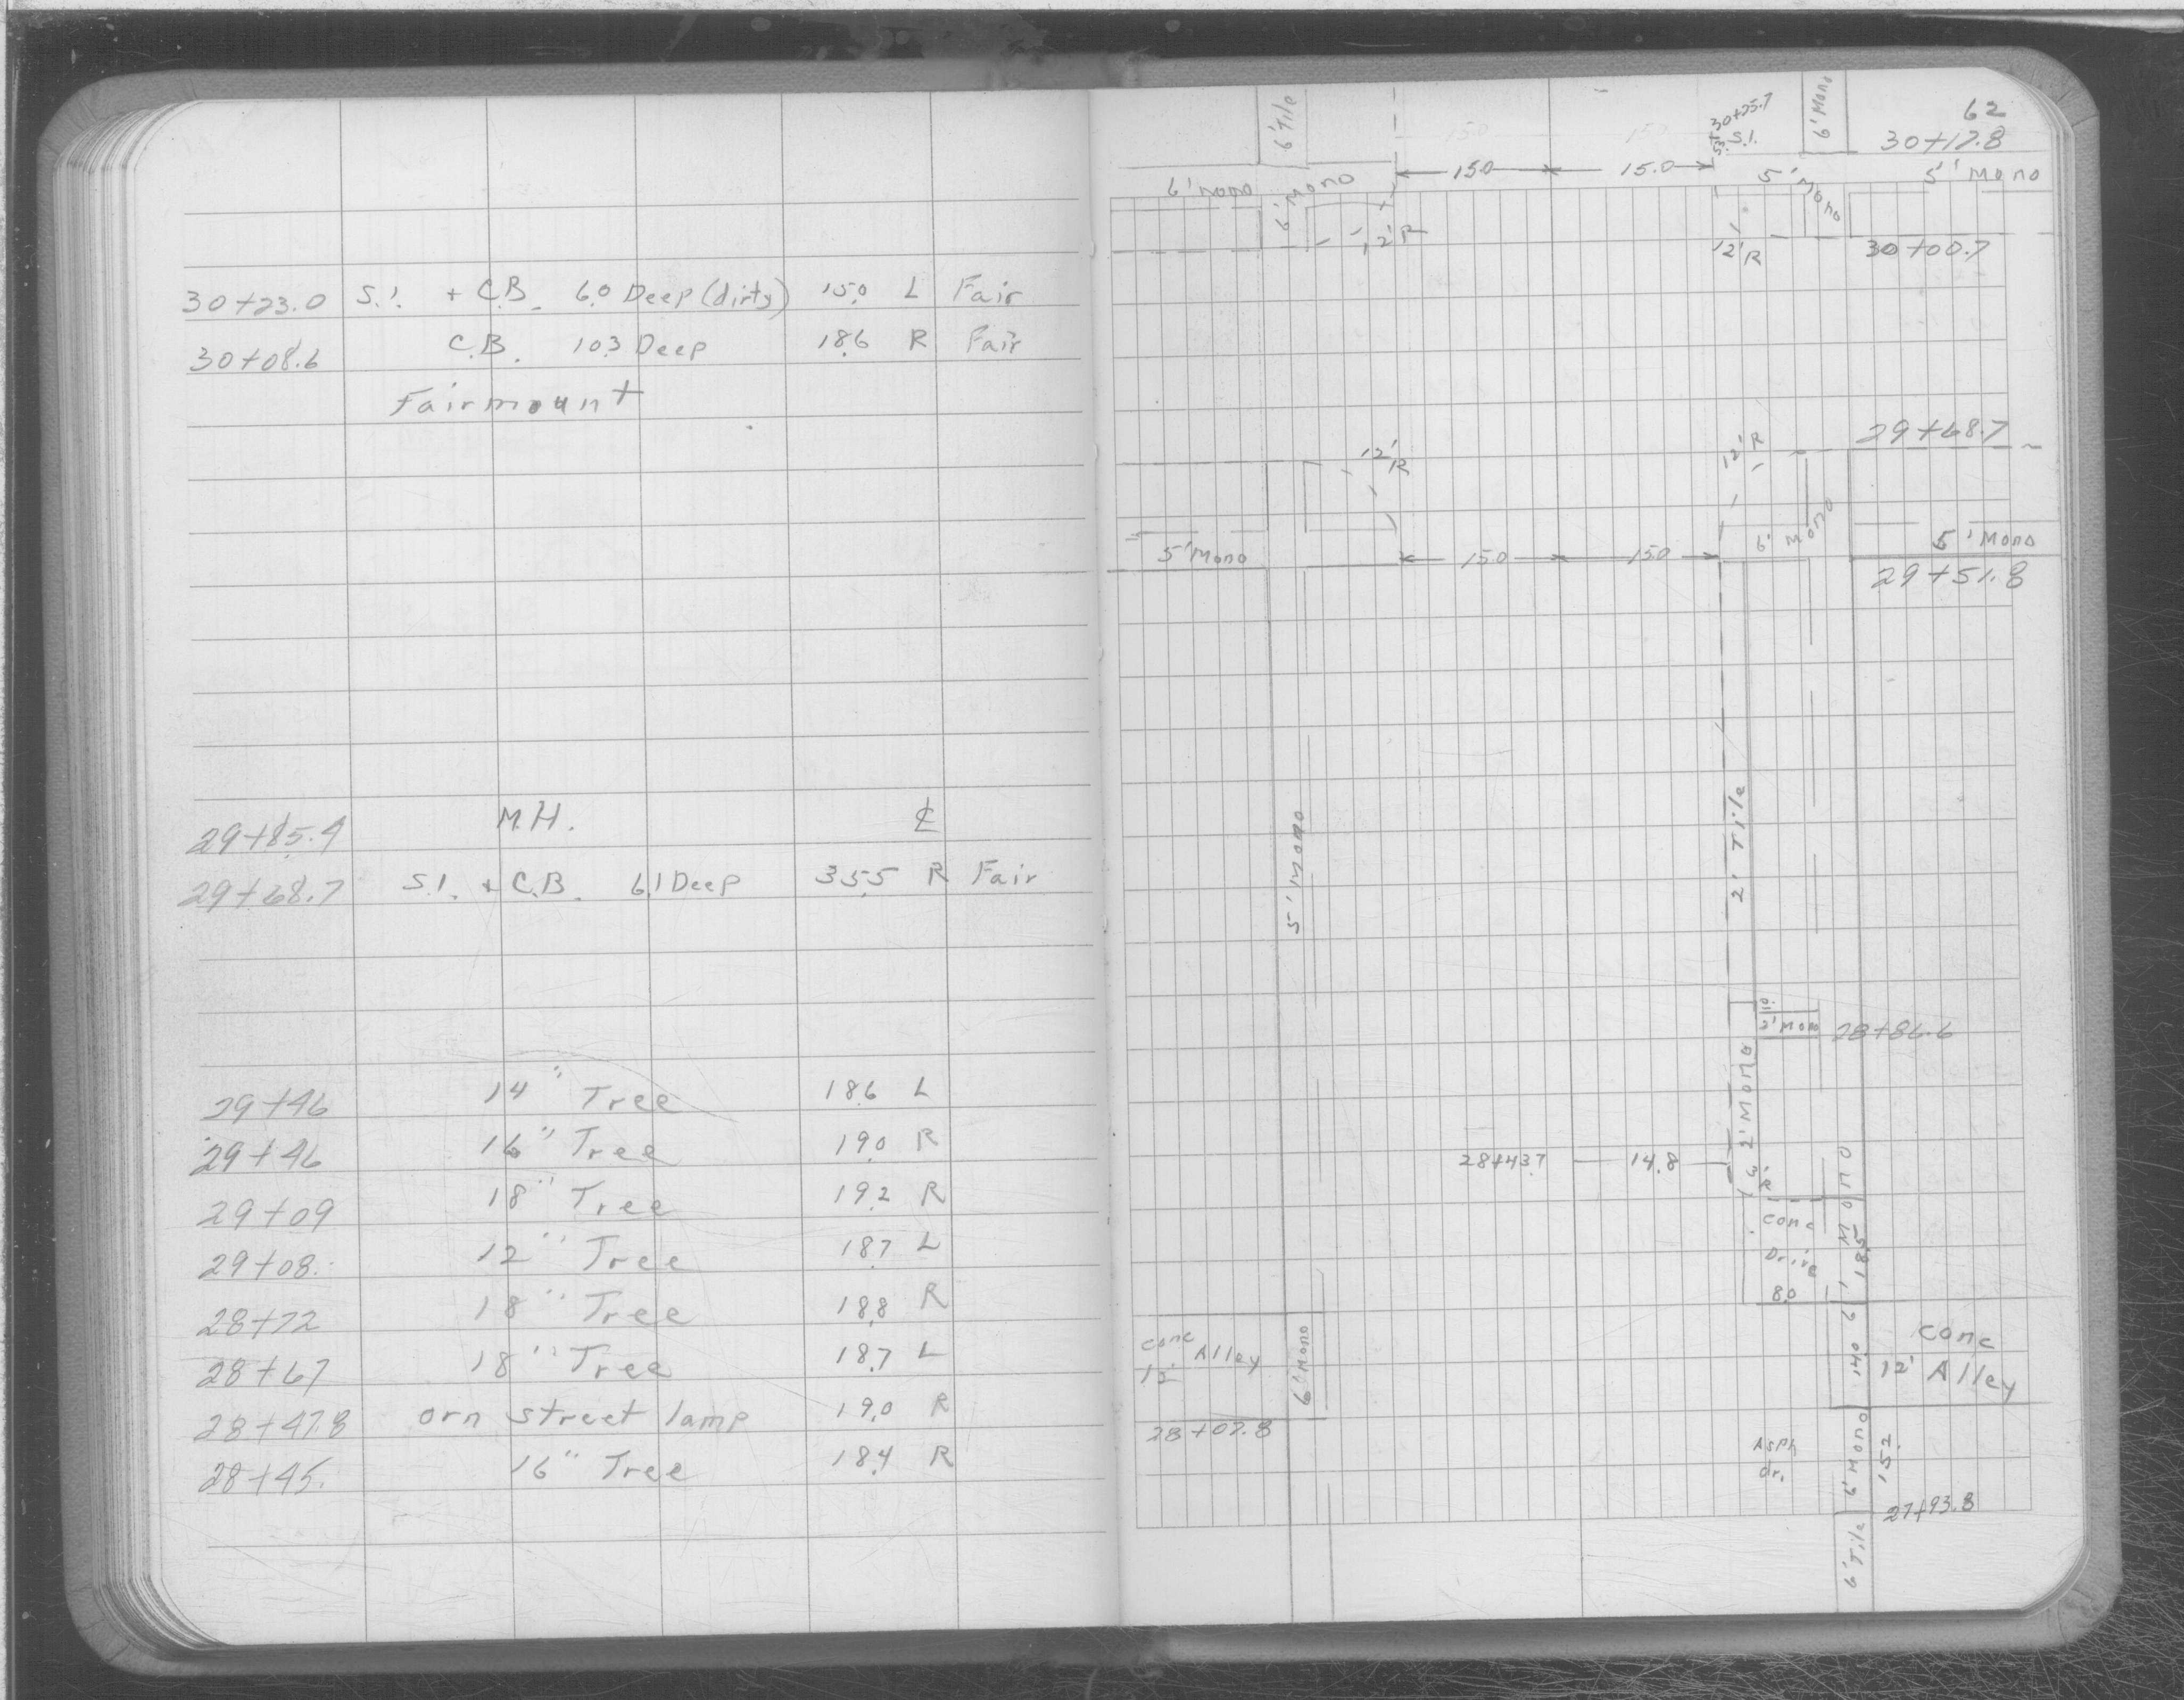 30+23.0 S.I. + C.B. 6.0 Deep (dirty) 15.0 L Fair
30+08.6 C.B. 10.3 Deep 18.6 R Fair
Fairmount
29+85.4 M.H. ℄
29+68.7 S.I. + C.B. 6.1 Deep 35.5 R Fair
29+46 14" Tree 18.6 L
29+46 16" Tree 19.0 R
29+09 18" Tree 19.2 R
29+08. 12" Tree 18.7 L
28+72 18" Tree 18.8 R
28+67 18" Tree 18.7 L
28+47.8 orn street lamp 19.0 R
28+45. 16" Tree 18.4 R
62
6' Tile
30+23.7
S.I.
6' Mono
30+17.8
15.0 15.0
6' mono
6' Mono
5' Mono
5' Mono
12' R
12' R
30+00.7
12' R
12' R
29+68.7
5' Mono
15.0 15.0
6' Mono
5' Mono
29+51.8
5' Mono
2' Tile
10.
2' Mono
28+86.6
2' Mono
28+43.7 14.8
3' R
Conc
Drive
8.0
6' Mono
18.5
14.0
Conc
Alley
12'
6' Mono
Conc
12' Alley
28+07.8
Asph
dr.
6' Mono
15.2
27+93.8
6' Tile